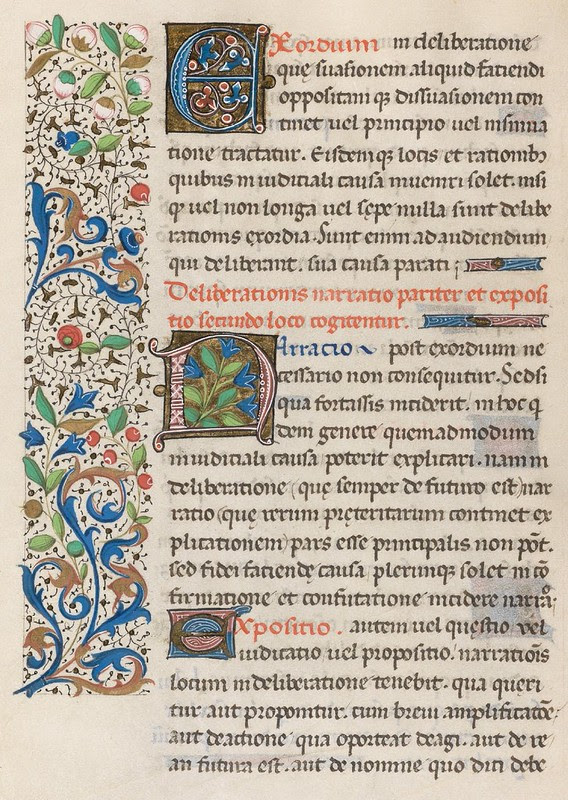 Exordium in deliberatione
que suasionem aliquid faciendi
oppositam qꝫ dissuasionem con
tinet uel principio uel insinua
tione tractatur. Eisdemqꝫ locis et rationibꝫ
quibus in iuditiali causa inueniri solet. nisi
ꝙ uel non longa uel sepe nulla sunt delibe
rationis exordia. Sunt enim ad audiendum
qui deliberant. sua causa parati ;
Deliberationis narratio pariter et exposi
tio secundo loco cogitentur.
Narracio post exordium ne
cessario non consequitur. Sed si
qua fortassis inciderit / in hoc qͥ
dem genere quemadmodum
in iuditiali causa poterit explicari. nam in
deliberatione (quę semper de futuro est) nar
ratio (que rerum pręteritarum continet ex
plicationem) pars esse principalis non pōt.
sed fidei faciendę causa plerunqꝫ solet in cō
firmatione et confutatione incidere narrāo.
Expositio. autem uel questio vel
iuditatio uel propositio / narratiōis
locum in deliberatione tenebit. qua queri
tur aut proponitur. cum breui amplificatōe:
aut de actione qua oporteat de agi. aut de re
an futura est. aut de nomine quo dici debe